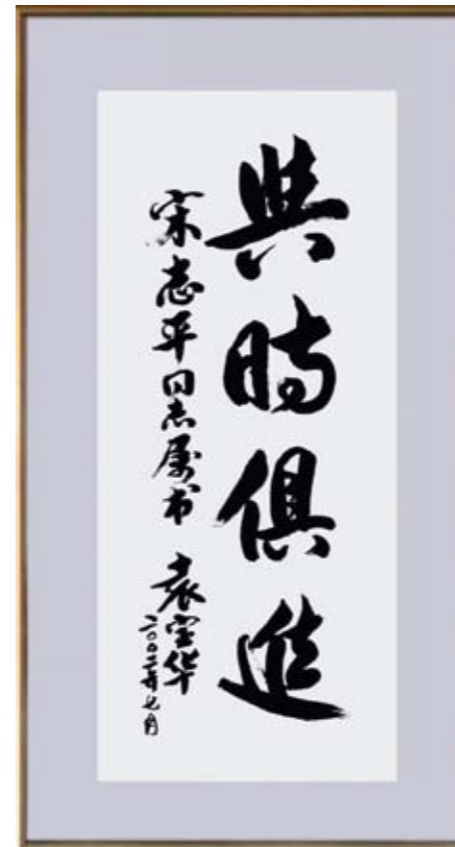 與時俱進
宋志平同志属书
袁宝华
二〇〇二年七月